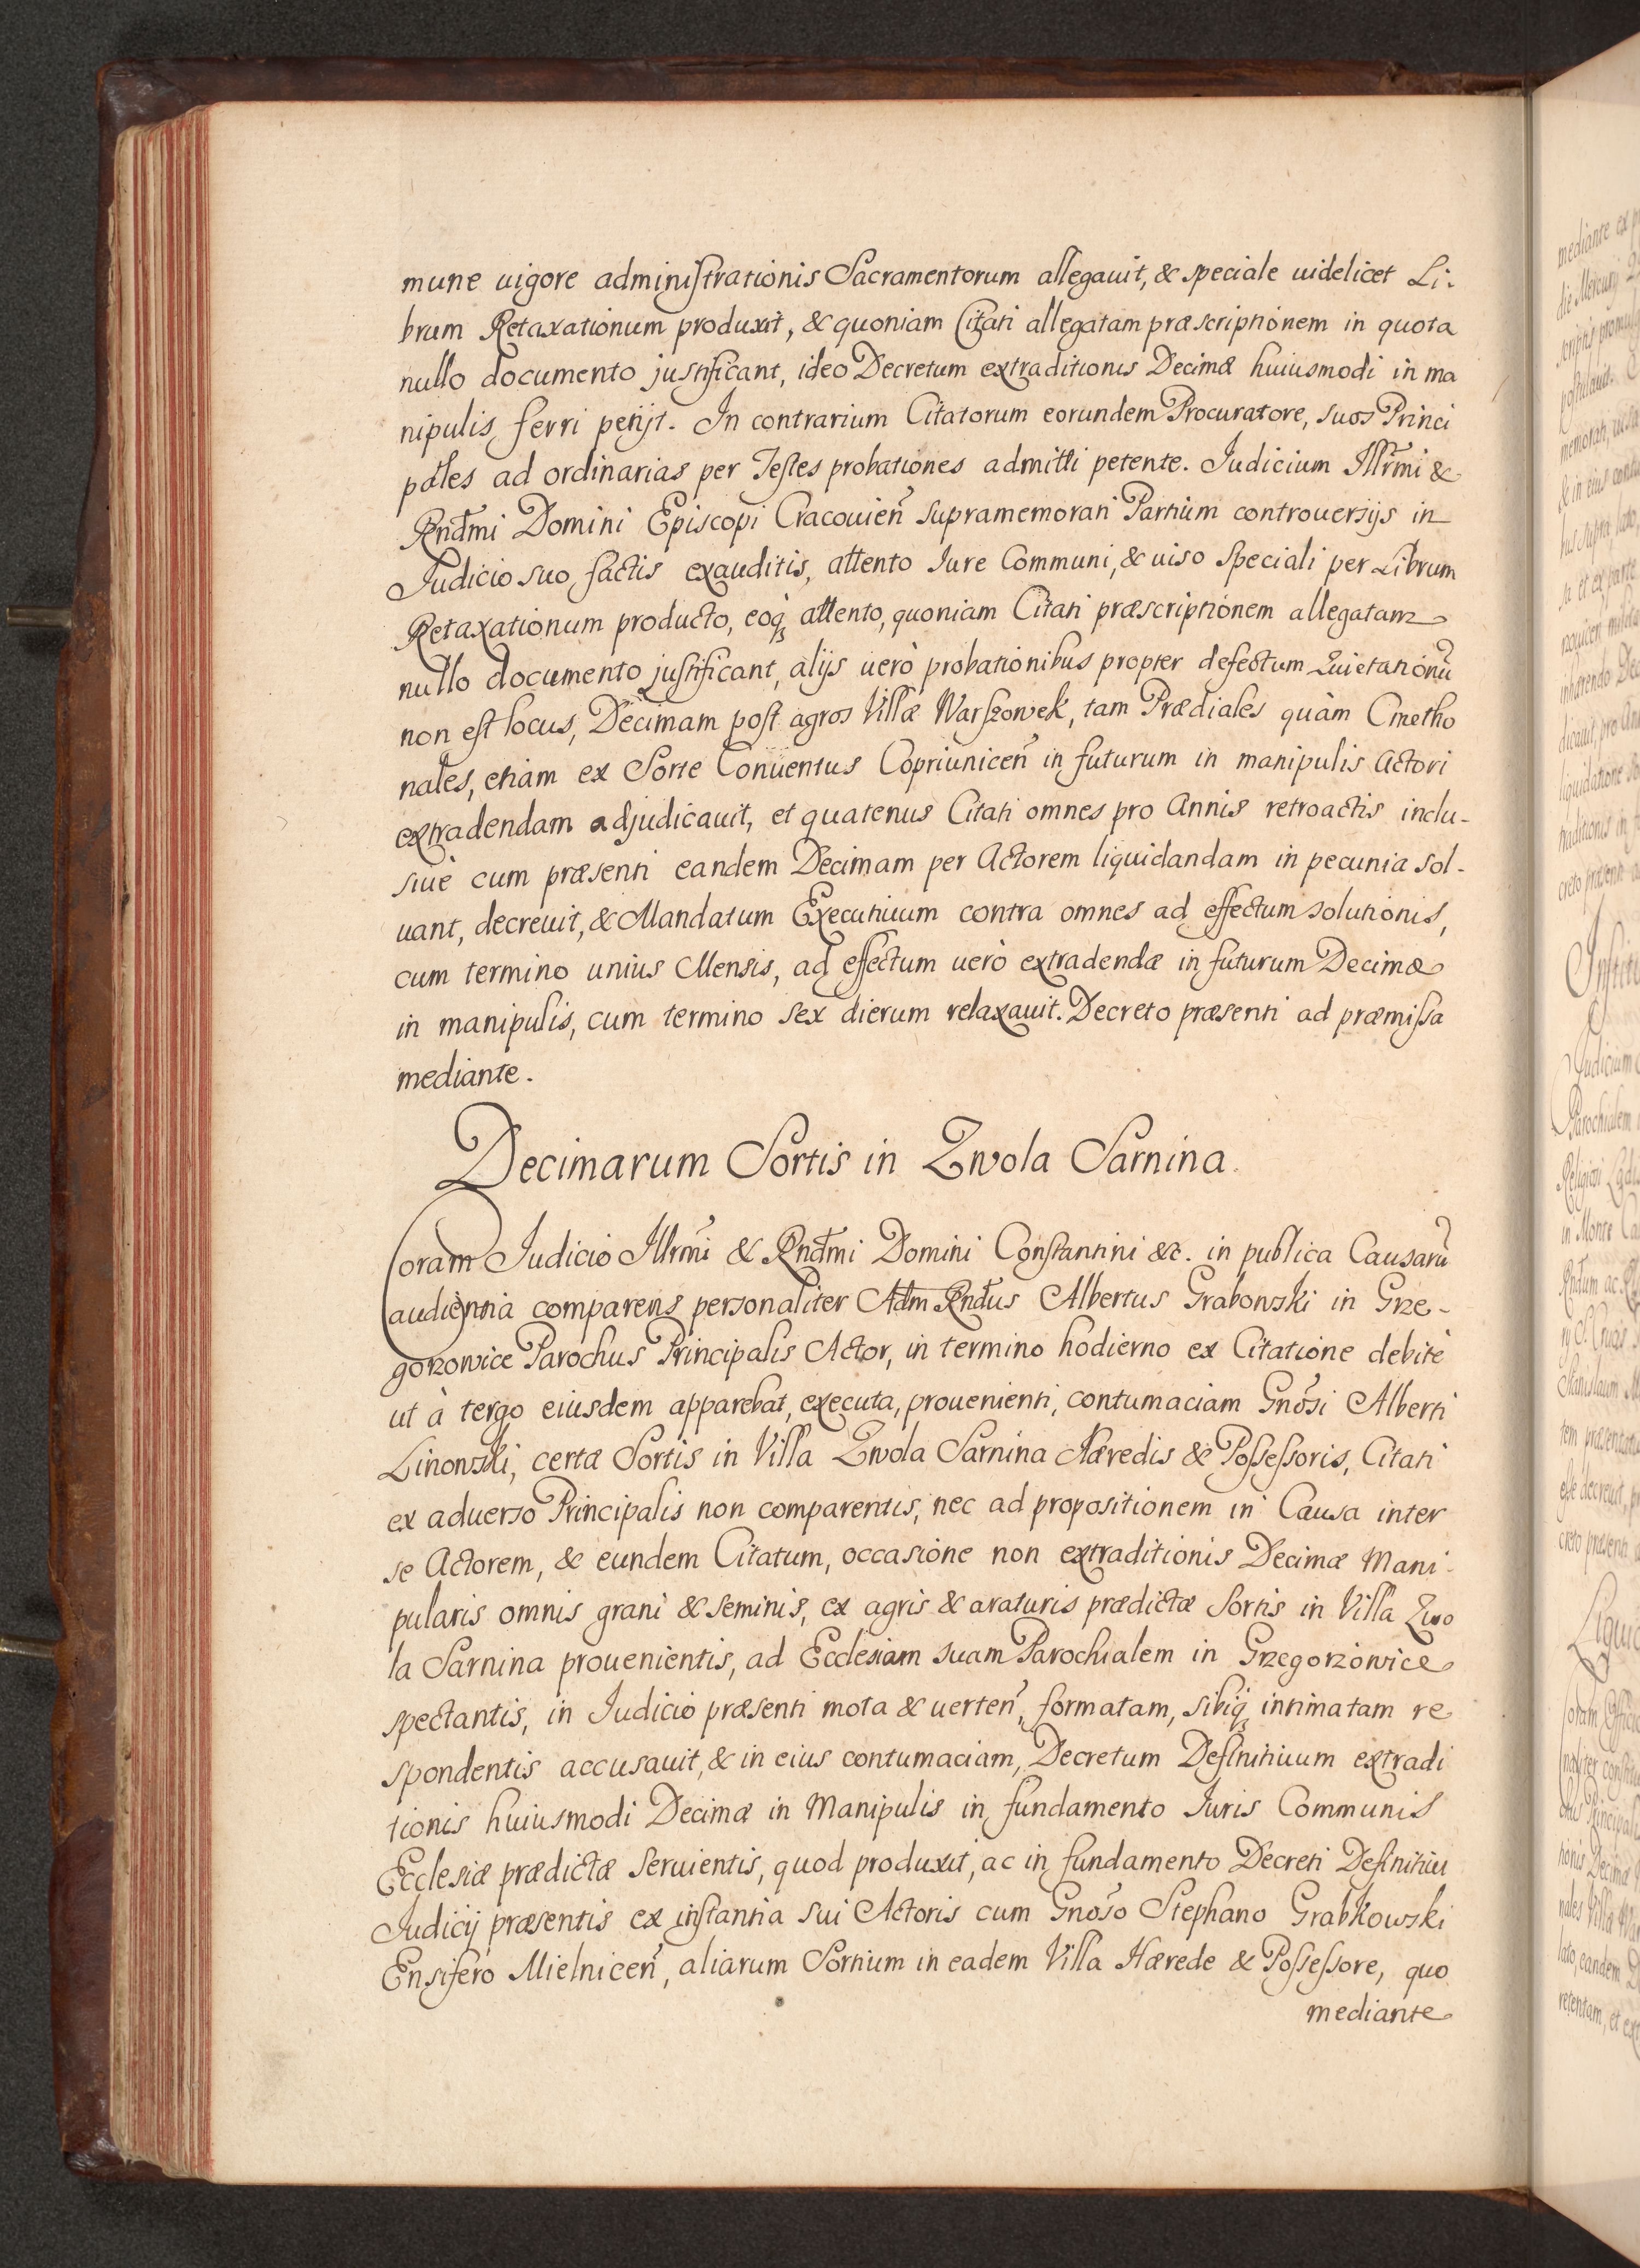 mune uigore administrationis Sacramentorum allegauit, & speciale uidelicet Li-
brum Retaxationum produxit, & quoniam Citati allegatam præscriptionem in quota
nullo documento justificant, ideo Decretum extraditionis Decimæ huiusmodi in ma
nipulis ferri petijt. In contrarium Citatorum eorundem Procuratore, suos Princi
pales ad ordinarias per Testes probationes admitti petente. Judicium Illr̃mi &
Rnd̃mi Domini Episcopi Cracouieñ supramemorati Partium controuersijs in
Judicio suo factis exauditis, attento Jure Communi, & uiso speciali per Librum
Retaxationum producto, eoq̨ attento, quoniam Citati præscriptionem allegatam
nullo documento justificant, alijs uerò probationibus propter defectum Quietationũ
non est locus, Decimam post agros Villæ Warszowek, tam Prædiales quàm Cmetho
nales, etiam ex Sorte Conuentus Copriuniceñ in futurum in manipulis Actori
extradendam adjudicauit, et quatenus Citati omnes pro Annis retroactis inclu-
siuè cum præsenti eandem Decimam per Actorem liquidandam in pecunia sol-
uant, decreuit, & Mandatum Executiuum contra omnes ad effectum solutionis,
cum termino unius Mensis, ad effectum uerò extradendæ in futurum Decimæ
in manipulis, cum termino sex dierum relaxauit. Decreto præsenti ad præmissa
mediante.
Decimarum Sortis in Zwola Sarnina.
Coram Judicio Illr̃mi & Rnd̃mi Domini Constantini &c. in publica Causarũ
audientia comparens personaliter Adm Rnd̃us Albertus Grabowski in Grze-
gorzowice Parochus Principalis Actor, in termino hodierno ex Citatione debitè
ut à tergo eiusdem apparebat, executa, prouenienti, contumaciam Gnõsi Alberti
Linowski, certæ Sortis in Villa Zwola Sarnina Hæredis & Possessoris, Citati
ex aduerso Principalis non comparentis, nec ad propositionem in Causa inter
se Actorem, & eundem Citatum, occasione non extraditionis Decimæ Mani-
pularis omnis grani & seminis, ex agris & araturis prædictæ Sortis in Villa Zwo
la Sarnina prouenientis, ad Ecclesiam suam Parochialem in Grzegorzowice
spectantis, in Judicio præsenti mota & uerteñ, formatam, sibiq̨ intimatam re
spondentis accusauit, & in eius contumaciam, Decretum Definitiuum extradi
tionis huiusmodi Decimæ in Manipulis in fundamento Juris Communis
Ecclesiæ prædictæ seruientis, quod produxit, ac in fundamento Decreti Definitiui
Judicij præsentis ex instantia sui Actoris cum Gnõso Stephano Grabkowski
Ensifero Mielniceñ, aliarum Sortium in eadem Villa Hærede & Possessore, quo
mediante